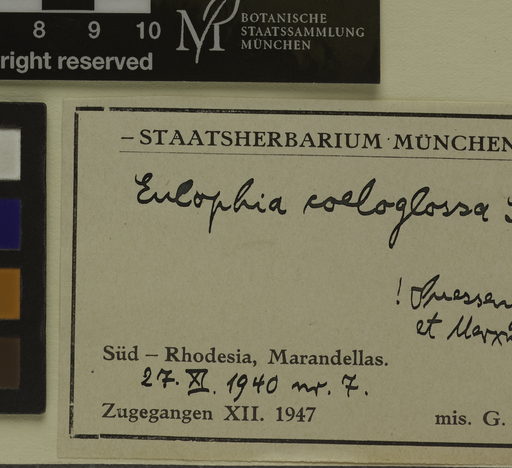 8 9 10
right reserved
BOTANISCHE
STAATSSAMMLUNG
MÜNCHEN
– STAATSHERBARIUM MÜNCHEN
Eulophia coeloglossa
!
et
Süd – Rhodesia, Marandellas.
27. XI. 1940 nr. 7.
Zugegangen XII. 1947 mis. G.